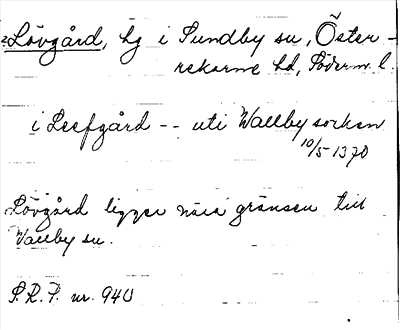 Lövgård, hg i Sundby sn, Öster-
rekarne hd, Söderm. l.
i Leefgård -- uti Wallby socken
10/5 1370
Lövgård ligger nära gränsen till
Vallby sn.
S.R.P. nr. 940